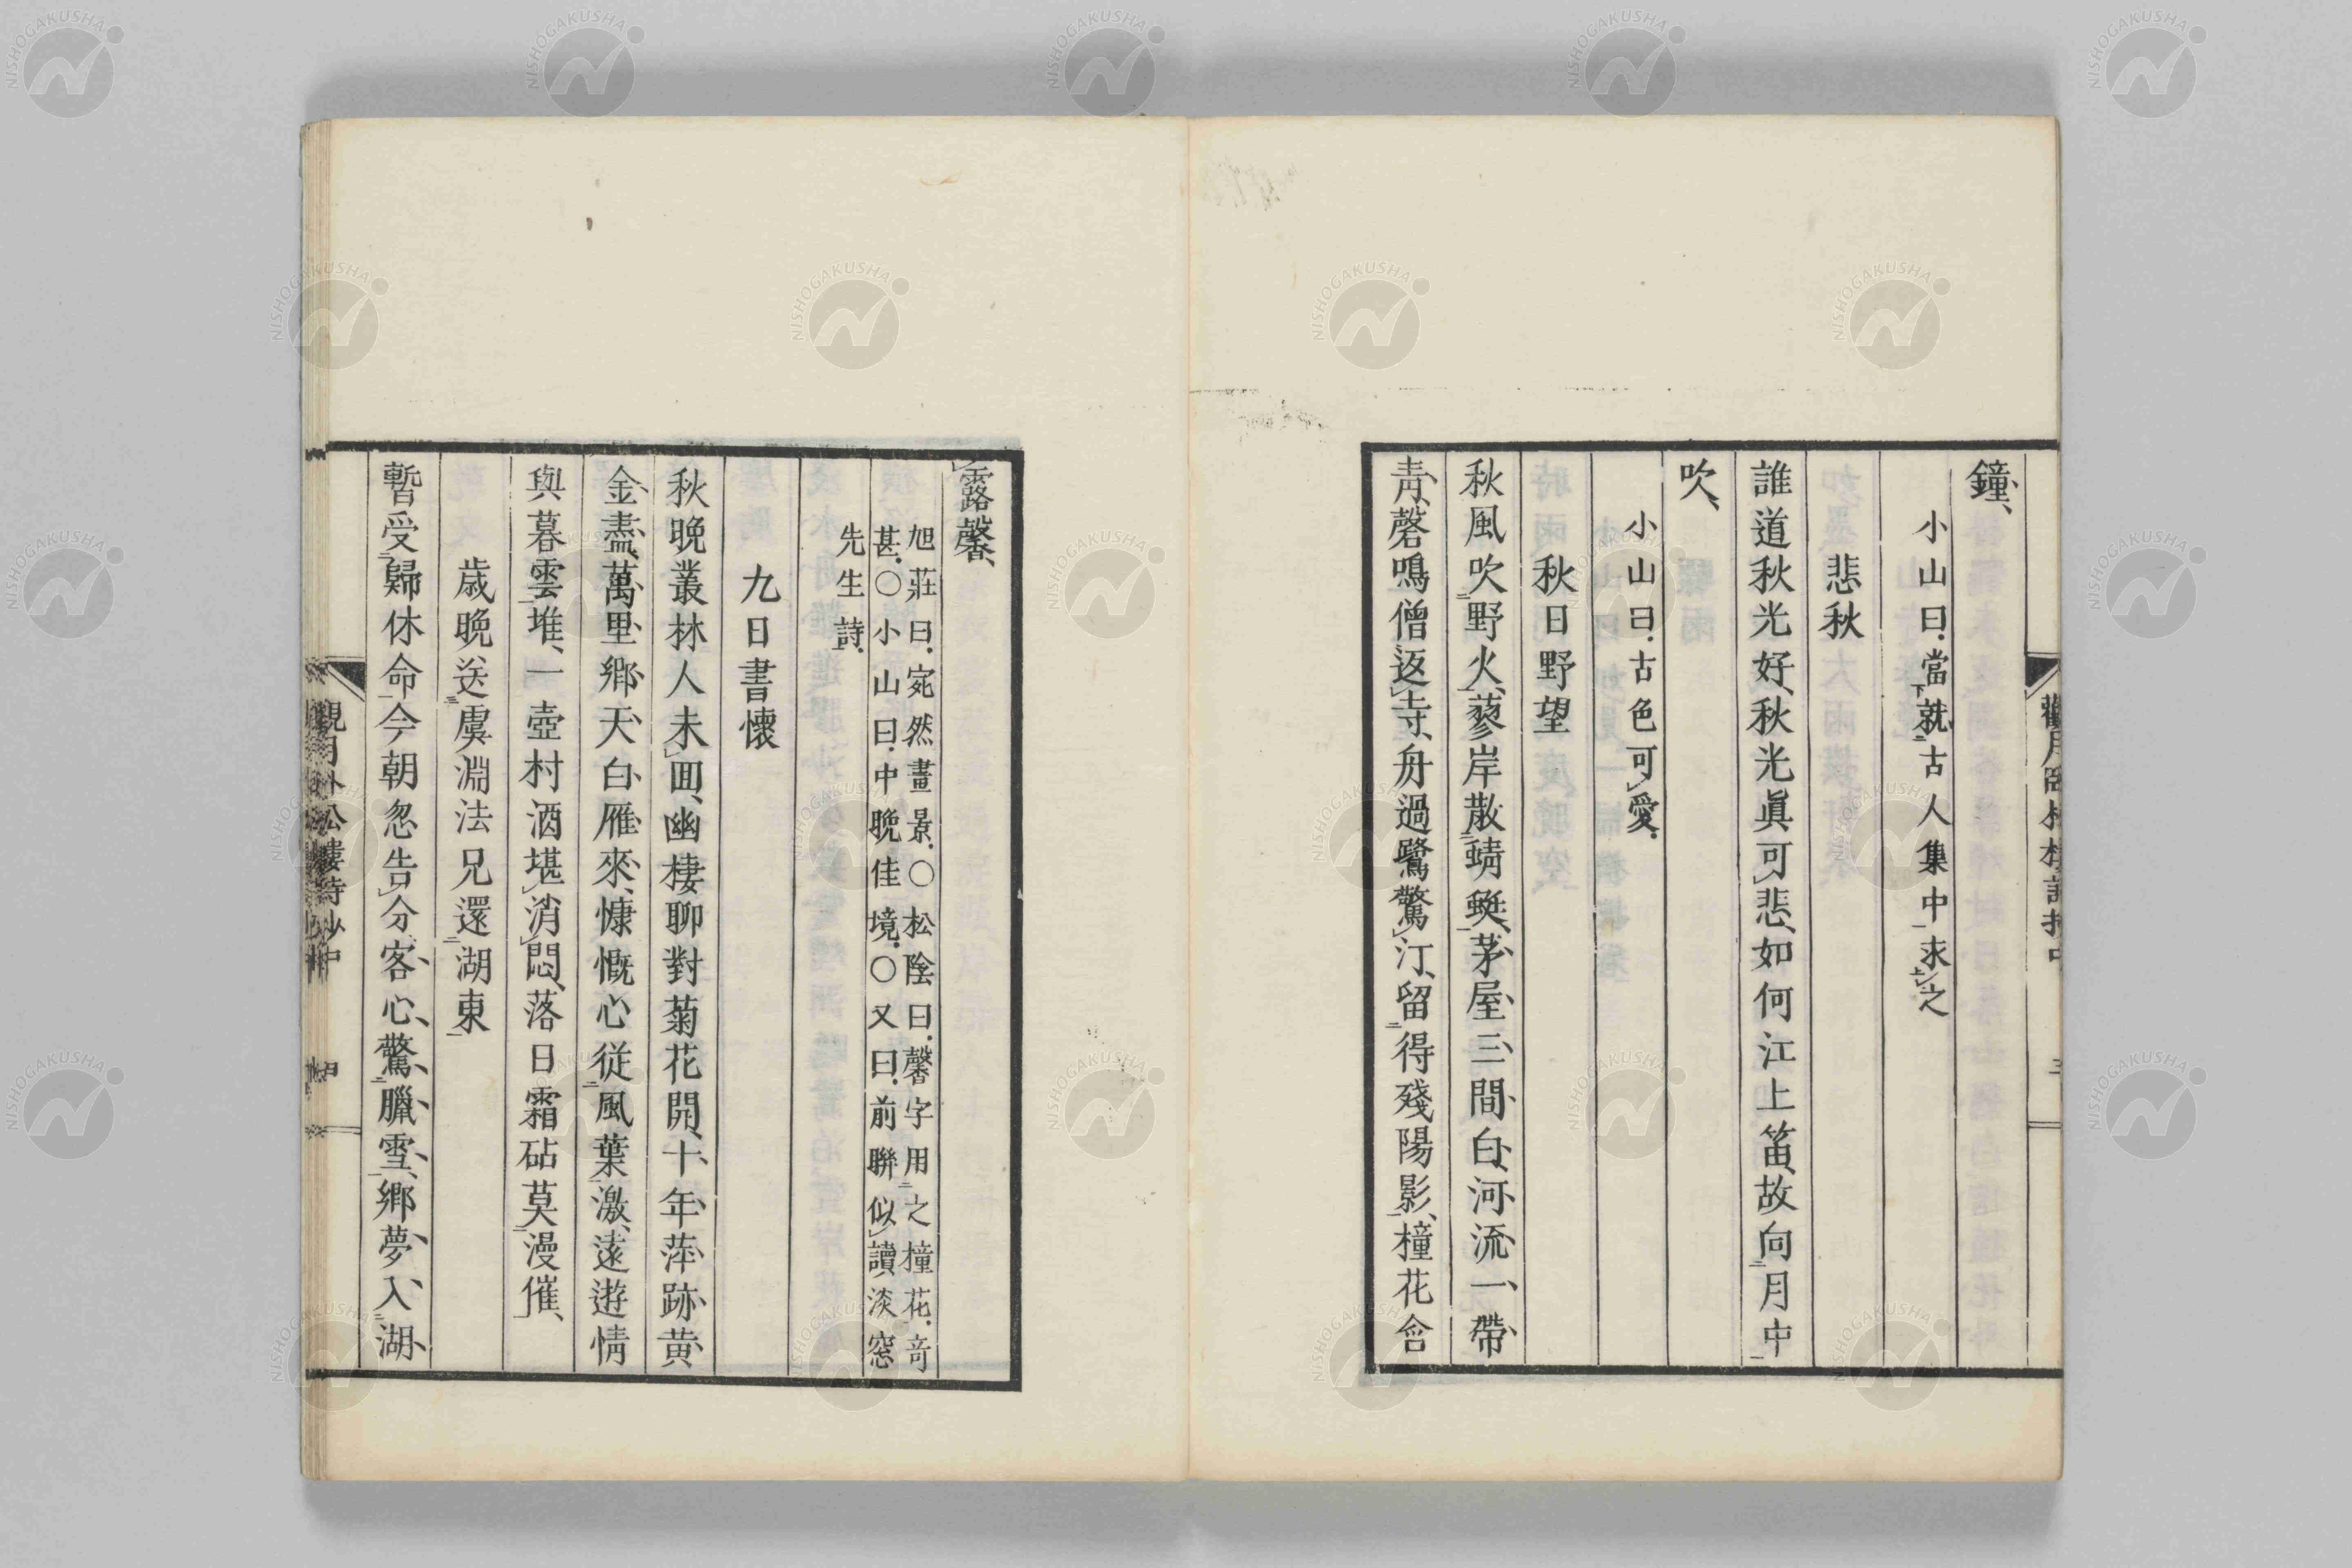 鐘、
小山曰.當下就二古人集中一求上レ之
悲秋
誰道秋光好、秋光眞可レ悲、如何江上笛、故向二月中一
吹、
小山曰.古色可レ愛.
秋日野望
秋風吹二野火一、蓼岸散二蜻蜓一、茅屋三間白、河流一帶
青、磬鳴僧返レ寺、舟過鷺驚レ汀、留二得殘陽影一、橦花含
露馨、
旭莊曰.宛然畫景.〇松陰曰.馨字用二之橦花一.奇
甚.〇小山曰.中晩佳境.〇又曰.前聯似レ讀淡窓
先生詩.
九日書懷
秋晩叢林人未レ囬、幽棲聊對菊花開、十年萍跡黄
金盡、萬里鄉天白雁來、慷慨心從二風葉一激、遠遊情
與二暮雲一堆、一壺村酒堪レ消レ悶、落日霜砧莫二漫催一、
歳晩、送三虞淵法兄還二湖東一
暫受二歸休命一、今朝忽告レ分、客心驚二臘雪一、鄉夢入二湖
NISHOGAKUSHA